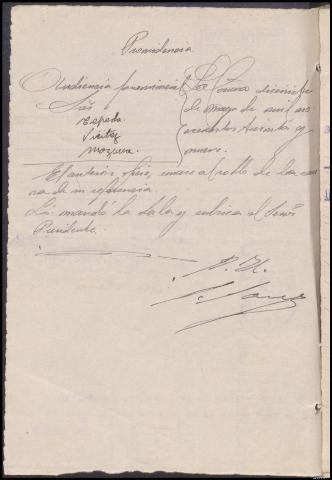 Providencia
Audiencia provincial
Sres
Cepeda
Vieitez
Mosquera
La Coruña diecisiete
de mayo de mil no-
vecientos treinta y
nueve.
El anterior oficio, únase al rollo de la cau-
sa de su referencia.
Lo mandó la Sala y rubrica el Señor
Presidente.